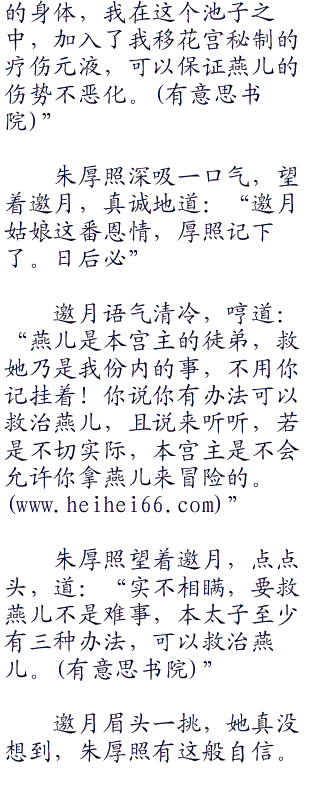 的身体，我在这个池子之
中，加入了我移花宫秘制的
疗伤元液，可以保证燕儿的
伤势不恶化。(有意思书
院)”
朱厚照深吸一口气，望
着邀月，真诚地道：“邀月
姑娘这番恩情，厚照记下
了。日后必”
邀月语气清冷，哼道：
“燕儿是本宫主的徒弟，救
她乃是我份内的事，不用你
记挂着！你说你有办法可以
救治燕儿，且说来听听，若
是不切实际，本宫主是不会
允许你拿燕儿来冒险的。
(www.heihei66.com)”
朱厚照望着邀月，点点
头，道：“实不相瞒，要救
燕儿不是难事，本太子至少
有三种办法，可以救治燕
儿。(有意思书院)”
邀月眉头一挑，她真没
想到，朱厚照有这般自信。